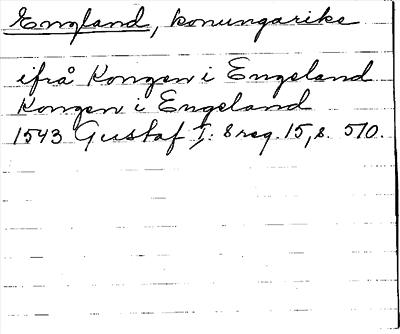 England, konungarike
ifrå Kongen i Engeland
Kongen i Engeland
1543 Gustaf I: s reg. 15, s. 510.